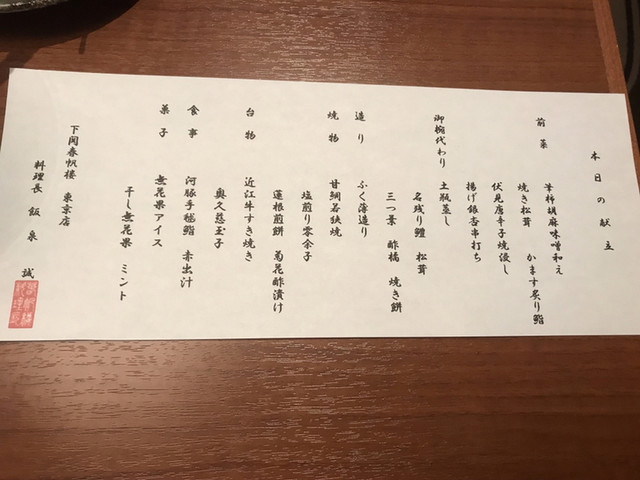 本日の献立
前菜 筆柿胡麻味噌和え
焼き松茸 かます炙り鮨
伏見唐辛子焼浸し
揚げ銀杏串打ち
御椀代わり 土瓶蒸し
名残り鱧 松茸
三つ葉 酢橘 焼き餅
造り ふく薄造り
焼物 甘鯛若狭焼
塩煎り零余子
蓮根煎餅 菊花酢漬け
台物 近江牛すき焼き
奥久慈玉子
食事 河豚手毬鮨 赤出汁
菓子 無花果アイス
干し無花果 ミント
下関春帆楼 東京店
料理長 飯泉 誠